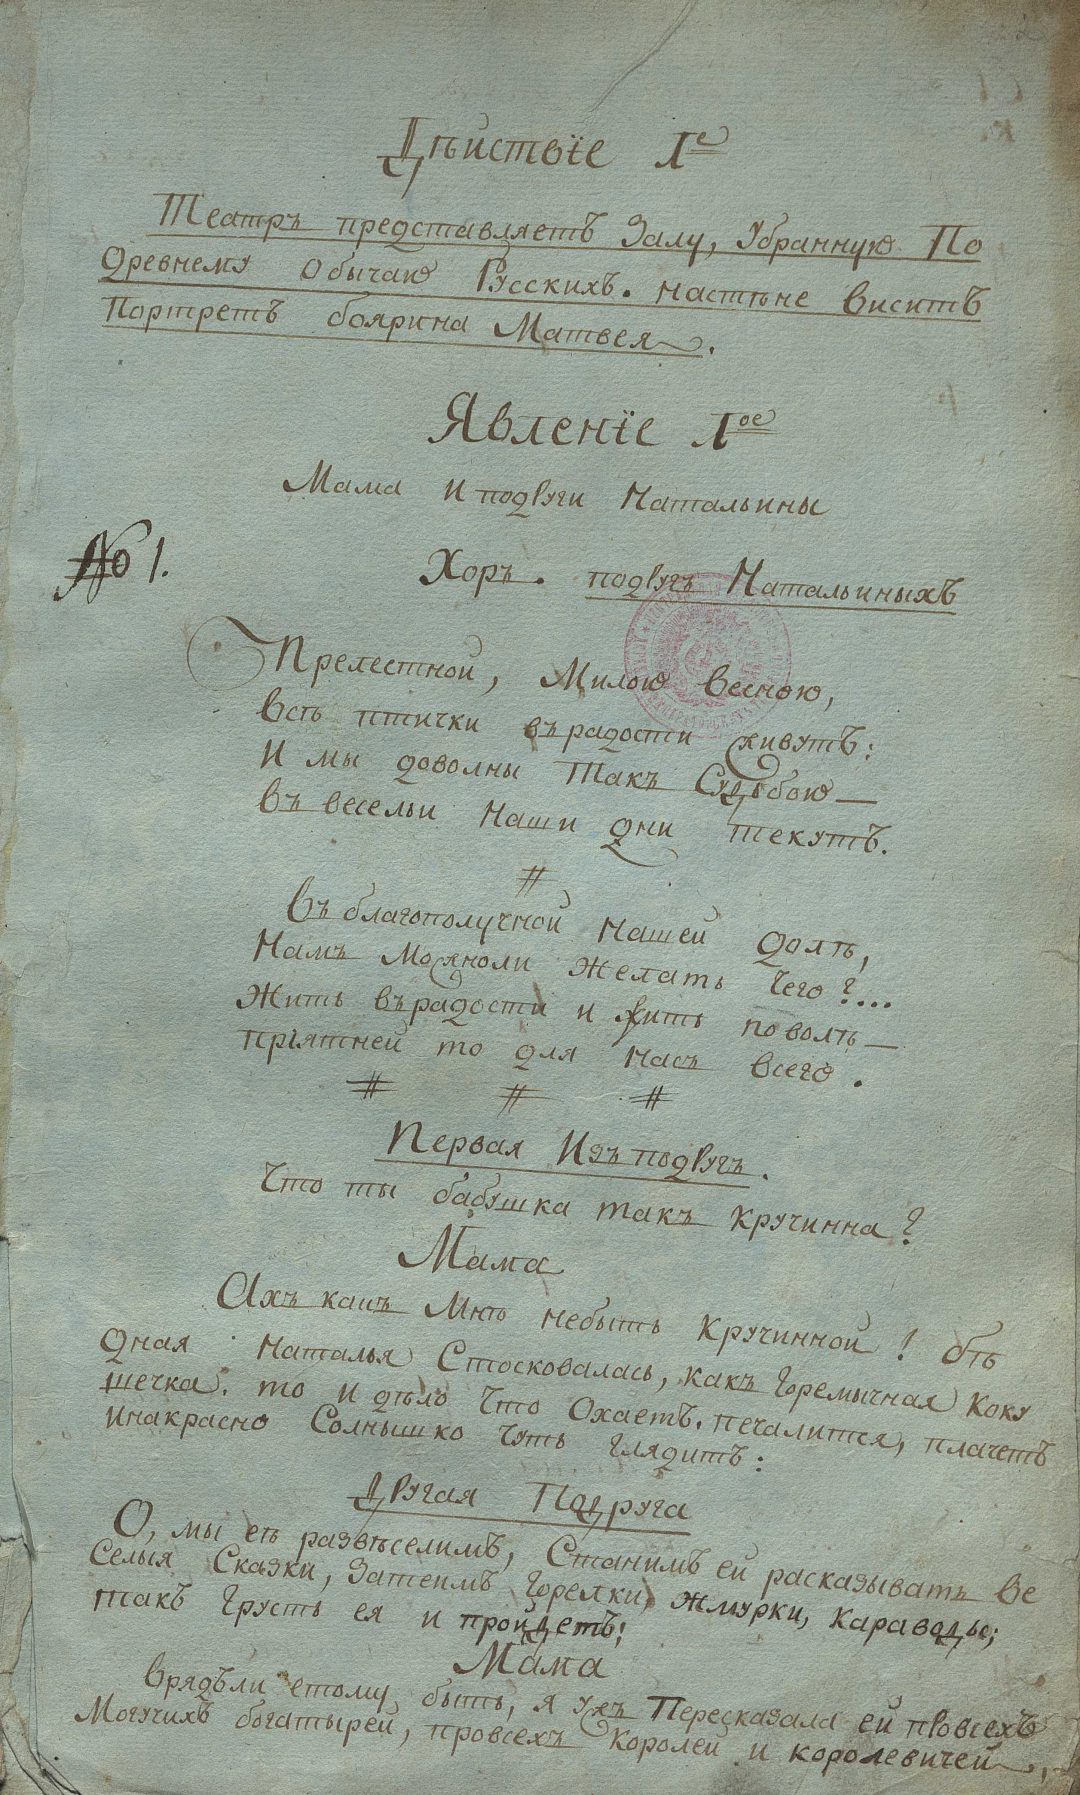 Дѣиствїе 1е
Театръ представляетъ Залу, убранную По
древнему обычаю Русскихъ. настѣне виситъ
Портретъ боярина Матвея.
Явленїе 1ое
Мама и подруги Натальины
№ 1.
Хоръ. подругъ Натальиныхъ
Прелестной, Милою весною,
всѣ птички въ радости живутъ:
И мы доволны Такъ Судьбою —
въ весельи наши дни текутъ.
#
въ благополучной нашей долѣ,
намъ Можноли желать чего?...
жить въ радости и жить по волѣ —
прiятней то для насъ всего.
# # #
Первая Изъ подругъ.
Что ты бабушка такъ кручинна?
Мама
Ахъ какъ Мнѣ небыть кручинной! бѣ
дная Наталья Стосковалась, какъ горемычная Коку
шечка. то и дѣло что Охаетъ. печалится, плачетъ
инакрасно Солнышко чуть глядитъ:
Другая Подруга
О, мы еѣ развѣселимъ, Станимъ ей расказывать ве
Селыя Сказки, Затеимъ горелки, жмурки, караводы;
такъ грусть ея и пройдетъ;
Мама
врядъли етому быть, я ужъ Пересказала ей провсехъ
Могучихъ богатырей, провсехъ королей и королевичей,